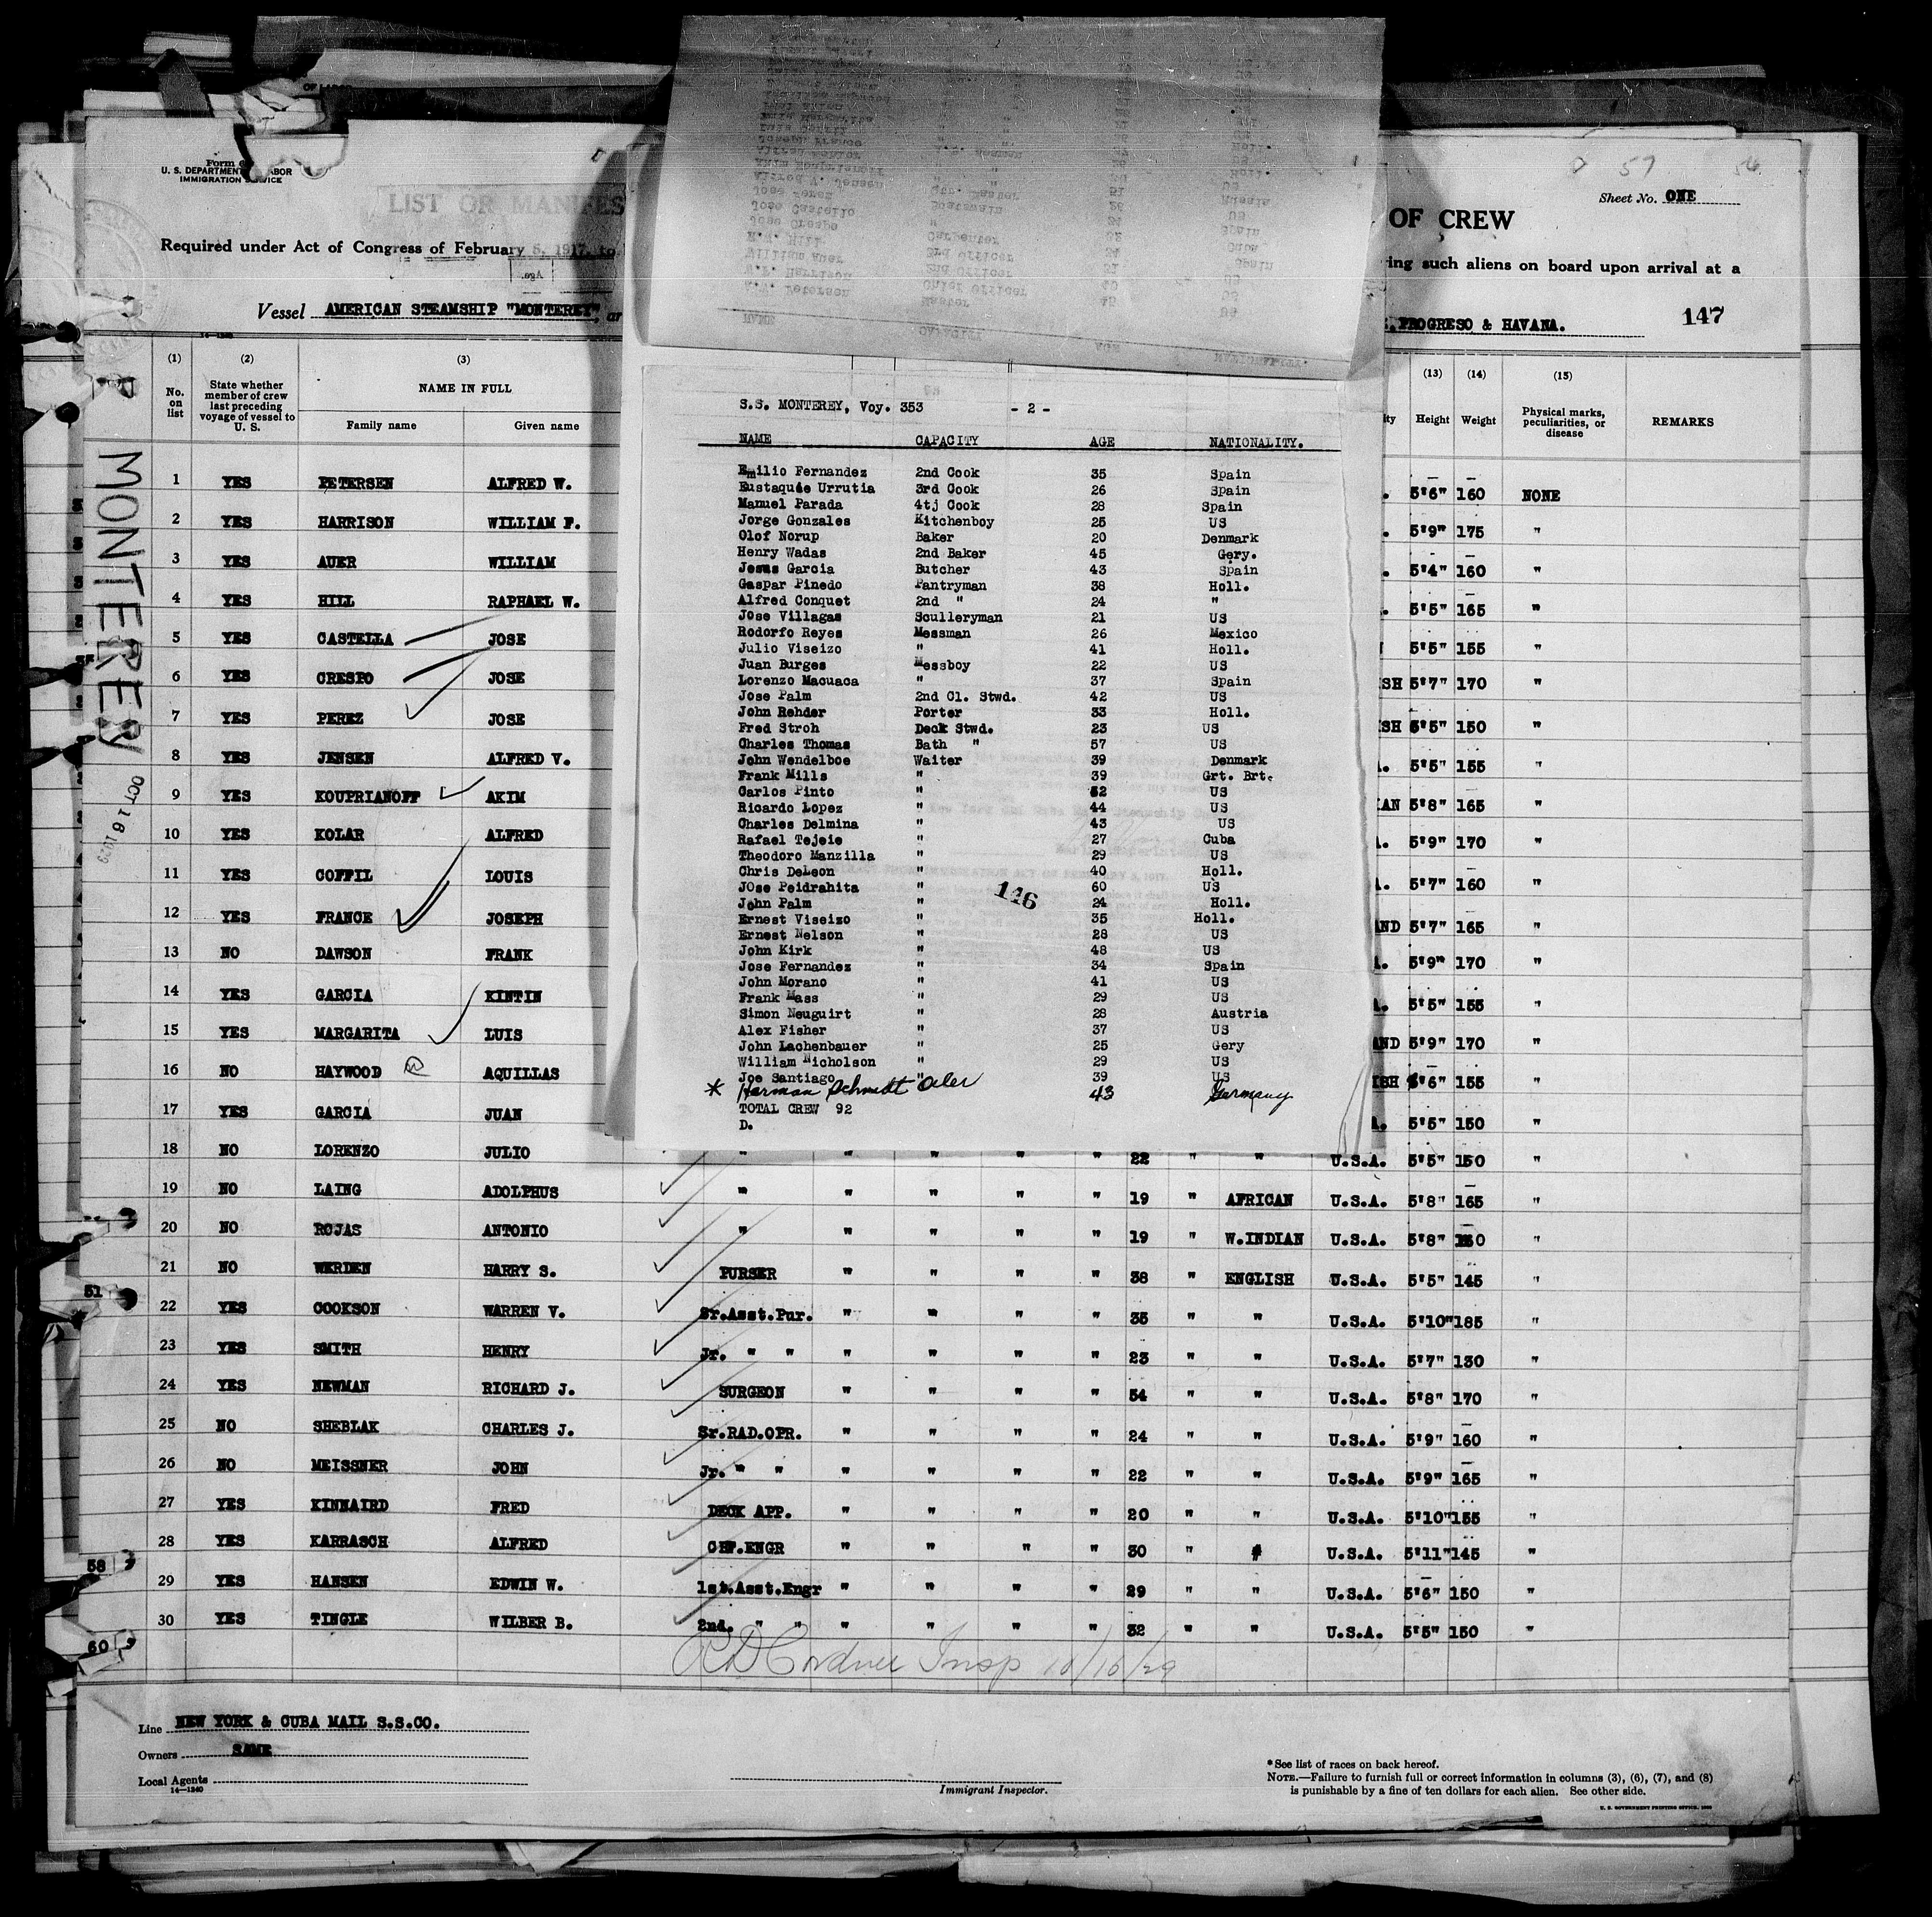 Form 6
U. S. DEPARTMENT LABOR
IMMIGRATION SERVICE
LIST OR MANIFES
OF CREW
Sheet No. ONE
57
56
Required under Act of Congress of February 5, 1917, to
ing such aliens on board upon arrival at a
Vessel AMERICAN STEAMSHIP "MONTEREY", ar
PROGRESO & HAVANA.
147
MONTEREY
OCT 16 1929
(1) (2) (3) (13) (14) (15)
No. on list
State whether member of crew last preceding voyage of vessel to U. S.
NAME IN FULL
Family name Given name
Height Weight
Physical marks, peculiarities, or disease
REMARKS
1 YES PETERSEN ALFRED W. 5'6" 160 NONE
2 YES HARRISON WILLIAM F. 5'9" 175 "
3 YES AUER WILLIAM 5'4" 160 "
4 YES HILL RAPHAEL W. 5'5" 165 "
5 YES CASTELLA JOSE 5'5" 155 "
6 YES CRESPO JOSE SH 5'7" 170 "
7 YES PEREZ JOSE SH 5'5" 150 "
8 YES JENSEN ALFRED V. 5'5" 155 "
9 YES KOUPRIANOFF AKIM IAN 5'8" 165 "
10 YES KOLAR ALFRED 5'9" 170 "
11 YES COFFIL LOUIS 5'7" 160 "
12 YES FRANCE JOSEPH AND 5'7" 165 "
13 NO DAWSON FRANK 5'9" 170 "
14 YES GARCIA KINTIN 5'5" 155 "
15 YES MARGARITA LUIS AND 5'9" 170 "
16 NO HAYWOOD AQUILLAS ISH 5'6" 155 "
17 YES GARCIA JUAN 5'5" 150 "
18 NO LORENZO JULIO " " " " " 22 " " U.S.A. 5'5" 150 "
19 NO LAING ADOLPHUS " " " " " 19 " AFRICAN U.S.A. 5'8" 165 "
20 NO ROJAS ANTONIO " " " " " 19 " W.INDIAN U.S.A. 5'8" "
21 NO WERDEN HARRY S. PURSER " " " " 38 " ENGLISH U.S.A. 5'5" 145 "
22 YES COOKSON WARREN V. Sr.Asst.Pur. " " " " 35 " " U.S.A. 5'10" 185 "
23 YES SMITH HENRY Jr. " " " " " " 23 " " U.S.A. 5'7" 130 "
24 YES NEWMAN RICHARD J. SURGEON " " " " 54 " " U.S.A. 5'8" 170 "
25 NO SHEBLAK CHARLES J. Sr.RAD.OPR. " " " " 24 " " U.S.A. 5'9" 160 "
26 NO MEISSNER JOHN Jr. " " " " " " 22 " " U.S.A. 5'9" 165 "
27 YES KINNAIRD FRED DECK APP. " " " " 20 " " U.S.A. 5'10" 155 "
28 YES KARRASCH ALFRED CHF.ENGR " " " " 30 " U.S.A. 5'11" 145 "
29 YES HANSEN EDWIN W. 1st.Asst.Engr " " " " 29 " " U.S.A. 5'6" 150 "
30 YES TINGLE WILBER B. 2nd. " " " " " " 32 " " U.S.A. 5'5" 150 "
Insp 10/16/29
51
58
60
S.S. MONTEREY, Voy. 353 - 2 -
NAME CAPACITY AGE NATIONALITY.
Emilio Fernandez 2nd Cook 35 Spain
Eustaquie Urrutia 3rd Cook 26 Spain
Manuel Parada 4tj Cook 28 Spain
Jorge Gonzales Kitchenboy 25 US
Olof Norup Baker 20 Denmark
Henry Wadas 2nd Baker 45 Gery.
Jesus Garcia Butcher 43 Spain
Gaspar Pinedo Pantryman 38 Holl.
Alfred Conquet 2nd " 24 "
Jose Villagas Sculleryman 21 US
Rodorfo Reyes Messman 26 Mexico
Julio Viseizo " 41 Holl.
Juan Burges Messboy 22 US
Lorenzo Macuaca " 37 Spain
Jose Palm 2nd Cl. Stwd. 42 US
John Rehder Porter 33 Holl.
Fred Stroh Deck Stwd. 23 US
Charles Thomas Bath " 57 US
John Wendelboe Waiter 39 Denmark
Frank Mills " 39 Grt. Brt.
Carlos Pinto " 52 US
Ricardo Lopez " 44 US
Charles Delmina " 43 US
Rafael Tejeie " 27 Cuba
Theodoro Manzilla " 29 US
Chris DeLeon " 40 Holl.
JOse Peidrahita " 60 US
John Palm " 24 Holl.
Ernest Viseizo " 35 Holl.
Ernest Nelson " 28 US
John Kirk " 48 US
Jose Fernandez " 34 Spain
John Morano " 41 US
Frank Mass " 29 US
Simon Neuguirt " 28 Austria
Alex Fisher " 37 US
John Lachenbauer " 25 Gery
William Nicholson " 29 US
Joe Santiago " 39 US
* Herman Schmidt Oiler 43 Germany
TOTAL CREW 92
D.
146
Line NEW YORK & CUBA MAIL S.S.CO.
Owners SAME
Local Agents
14—1240
Immigrant Inspector.
* See list of races on back hereof.
NOTE.—Failure to furnish full or correct information in columns (3), (6), (7), and (8)
is punishable by a fine of ten dollars for each alien. See other side.
U. S. GOVERNMENT PRINTING OFFICE